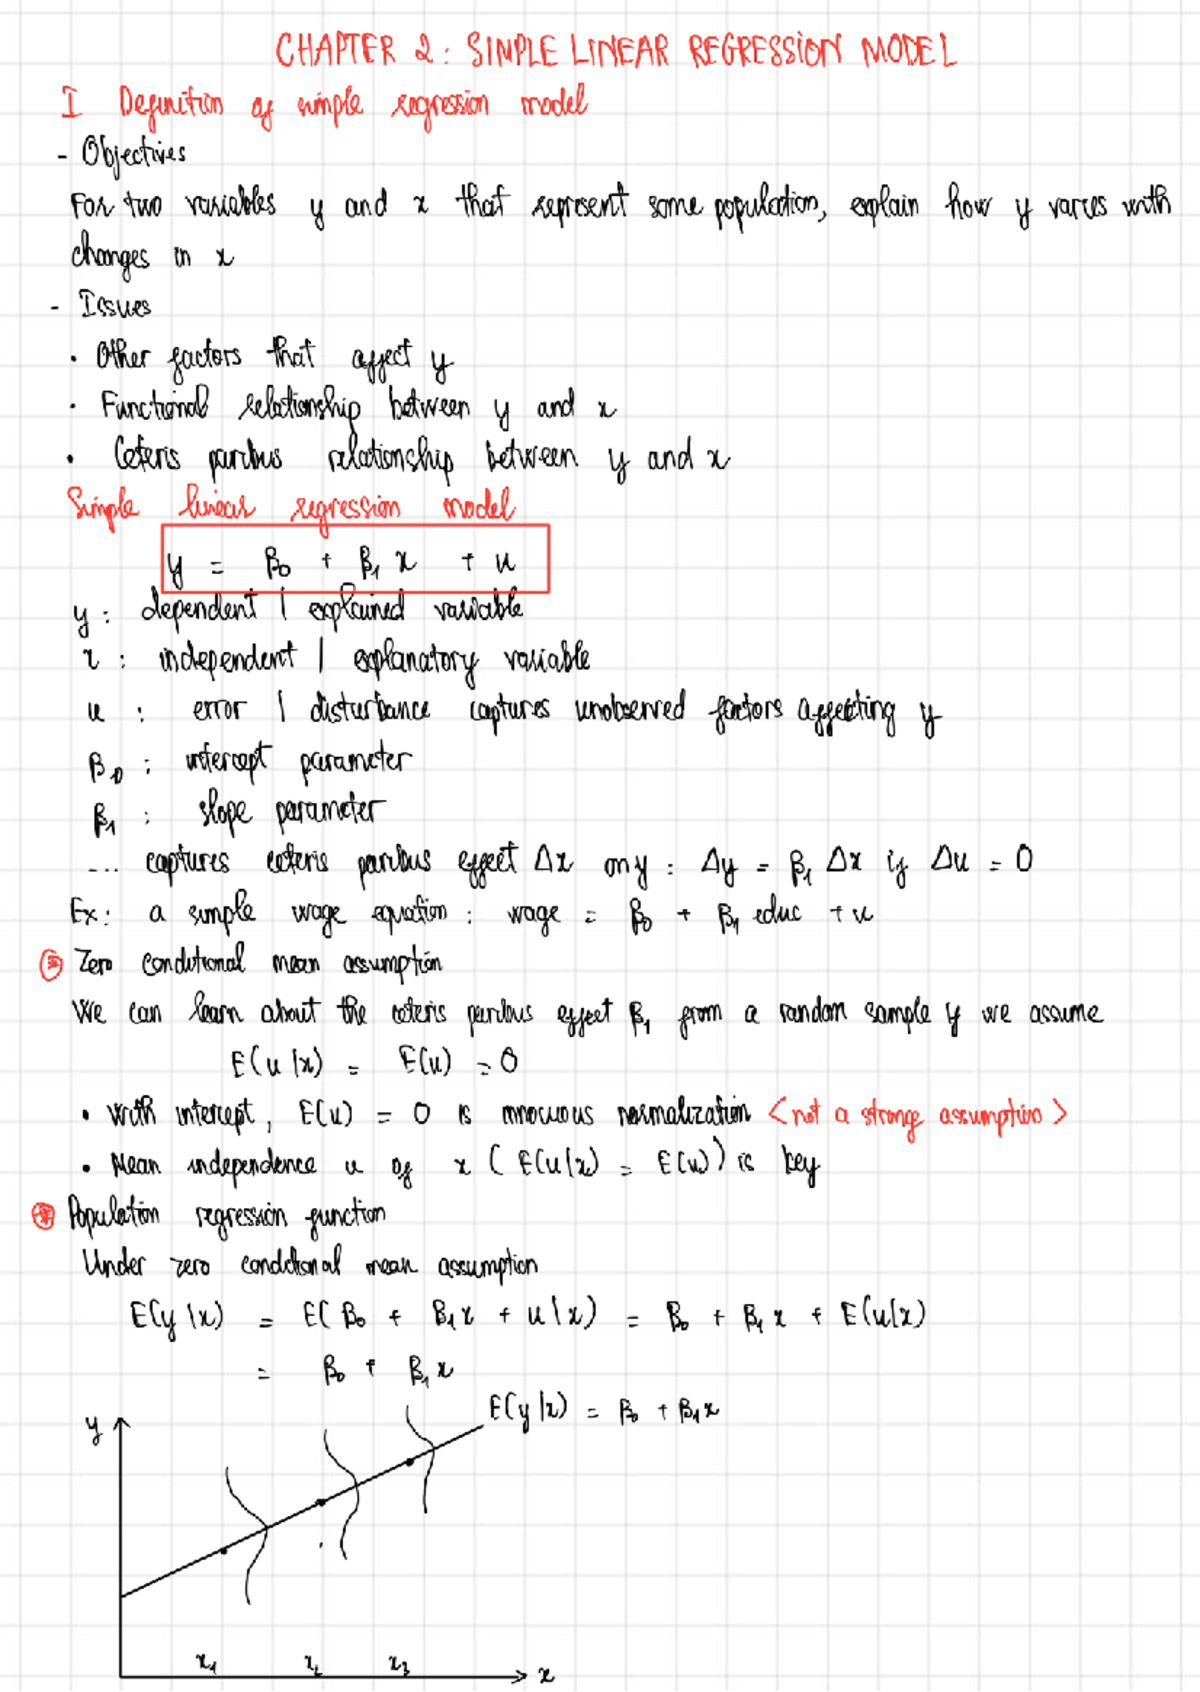 CHAPTER 2: SIMPLE LINEAR REGRESSION MODEL
I Definition of simple regression model
- Objectives
For two variables y and x that represent some population, explain how y varies with
changes in x
- Issues
• Other factors that affect y
• Functional relationship between y and x
• Ceteris paribus relationship between y and x
Simple linear regression model
y = β₀ + β₁ x + u
y : dependent | explained variable
x : independent | explanatory variable
u : error | disturbance captures unobserved factors affecting y
β₀ : intercept parameter
β₁ : slope parameter
... captures ceteris paribus effect Δx on y : Δy = β₁ Δx if Δu = 0
Ex: a simple wage equation : wage = β₀ + β₁ educ + u
Zero conditional mean assumption
We can learn about the ceteris paribus effect β₁ from a random sample if we assume
E(u|x) = E(u) = 0
• With intercept, E(u) = 0 is innocuous normalization <not a strong assumption>
• Mean independence u of x (E(u|x) = E(u)) is key
Population regression function
Under zero conditional mean assumption
E(y|x) = E(β₀ + β₁x + u|x) = β₀ + β₁ x + E(u|x)
= β₀ + β₁ x
E(y|x) = β₀ + β₁x
y
x₁ x₂ x₃ x